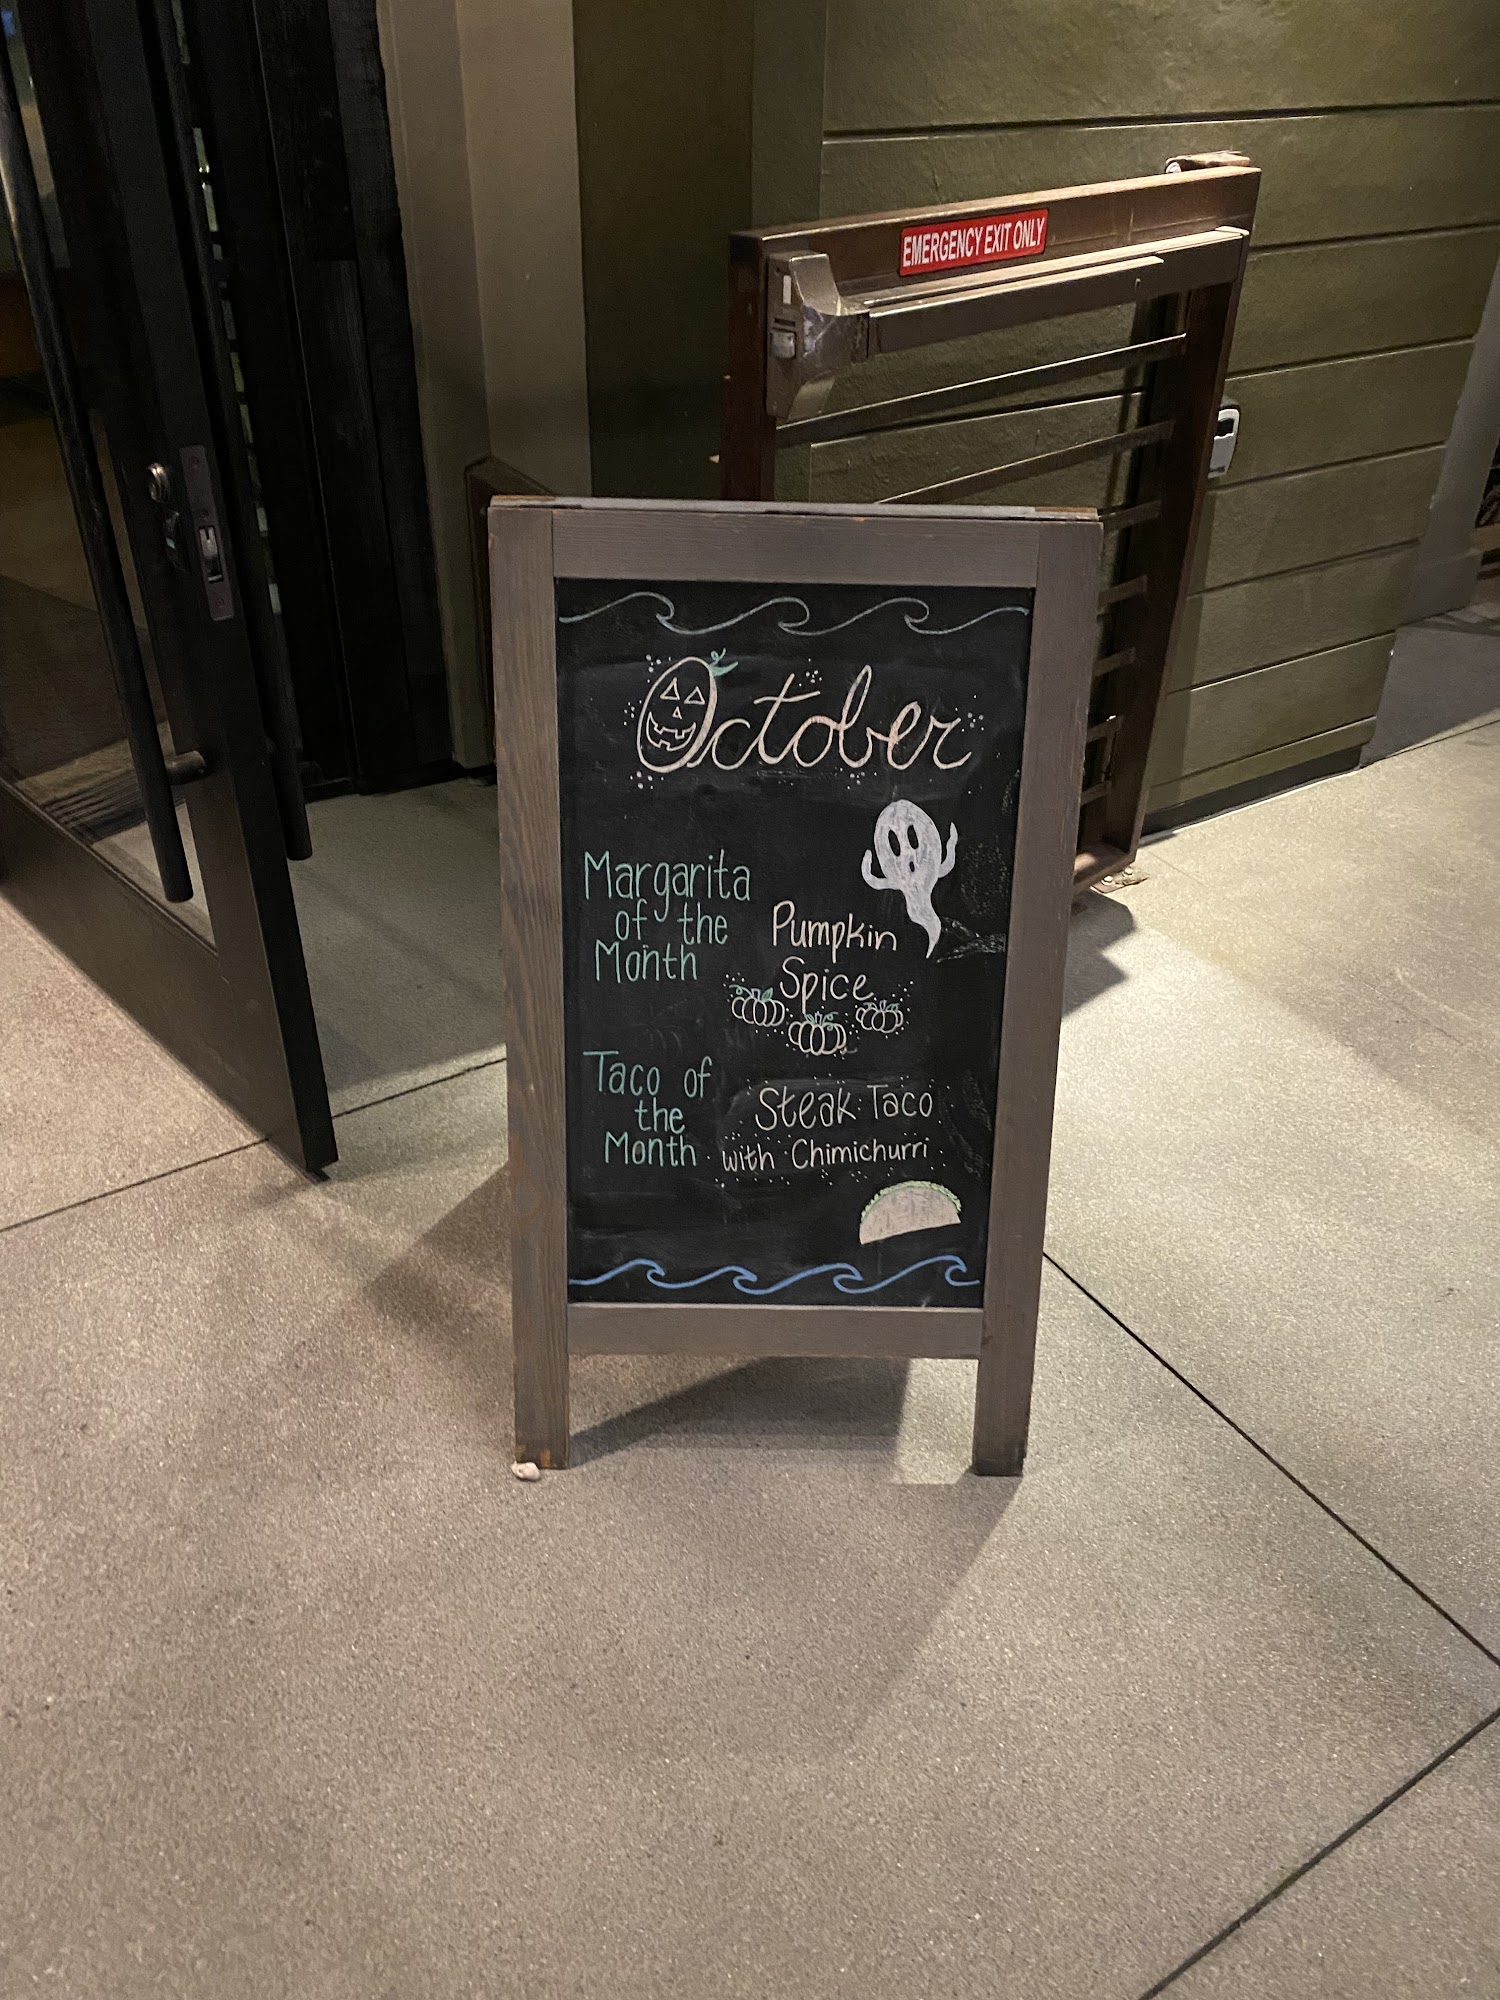 EMERGENCY EXIT ONLY
October
Margarita
of the
Month
Pumpkin
Spice
Taco of
the
Month
Steak Taco
with Chimichurri